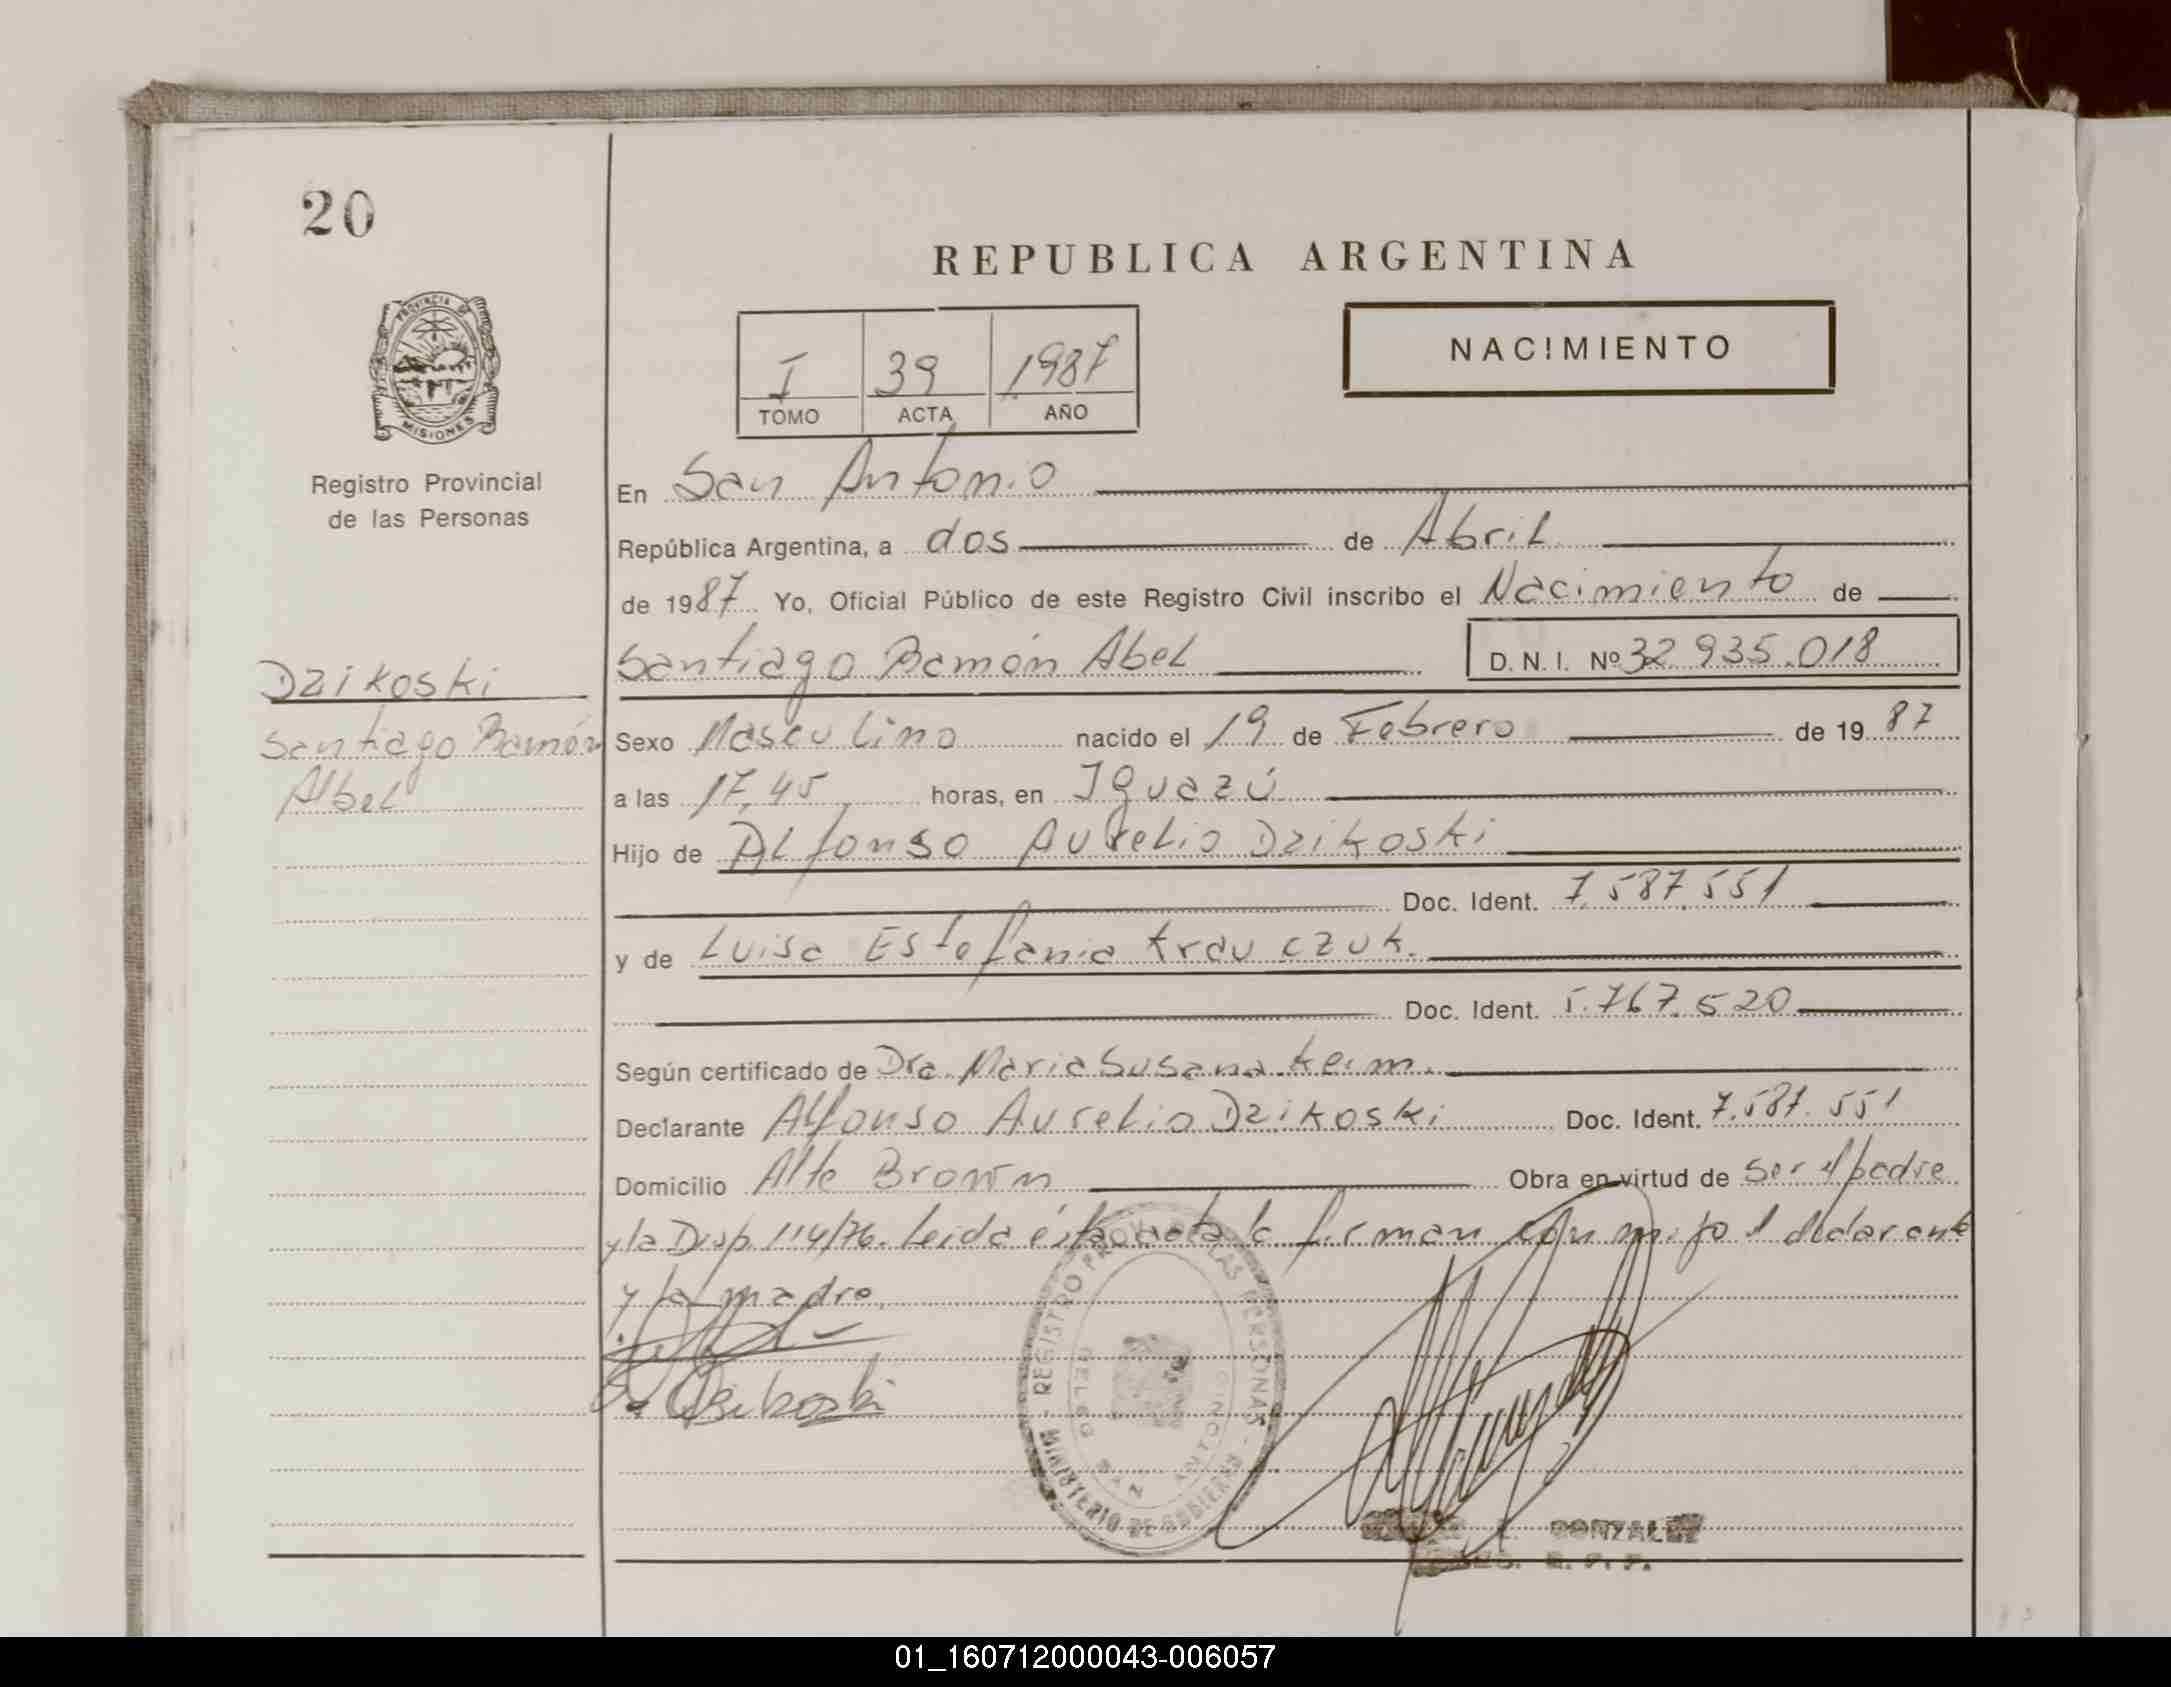 20
REPUBLICA ARGENTINA
NACIMIENTO
I 39 1987
TOMO ACTA AÑO
PROVINCIA DE
MISIONES
Registro Provincial
de las Personas
En San Antonio
República Argentina, a dos de Abril
de 1987 Yo, Oficial Público de este Registro Civil inscribo el Nacimiento de
Santiago Ramón Abel D. N. I. Nº 32 935.018
Dzikoski
Santiago Ramón
Abel
Sexo Masculino nacido el 19 de Febrero de 19 87
a las 17,45 horas, en Iguazú
Hijo de Alfonso Aurelio Dzikoski
Doc. Ident. 7.587.551
y de Luisa Estefania Krauczuk.
Doc. Ident. 5.767.520
Según certificado de Dra. Maria Susana Keim.
Declarante Alfonso Aurelio Dzikoski Doc. Ident. 7.587.551
Domicilio Alte Brown Obra en virtud de ser el padre
y la Disp. 114/76. Leida ésta acta la firman conmigo el declarante
y la madre.
REGISTRO PROV. DE LAS PERSONAS
DELEG. SAN ANTONIO
MINISTERIO DE GOBIERNO
Dzikoski
GONZALEZ
R. P. P.
01_160712000043-006057